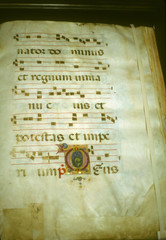 nator do minus
et regnum inma
nu e ius et
potestas et impe
ri um p Deus